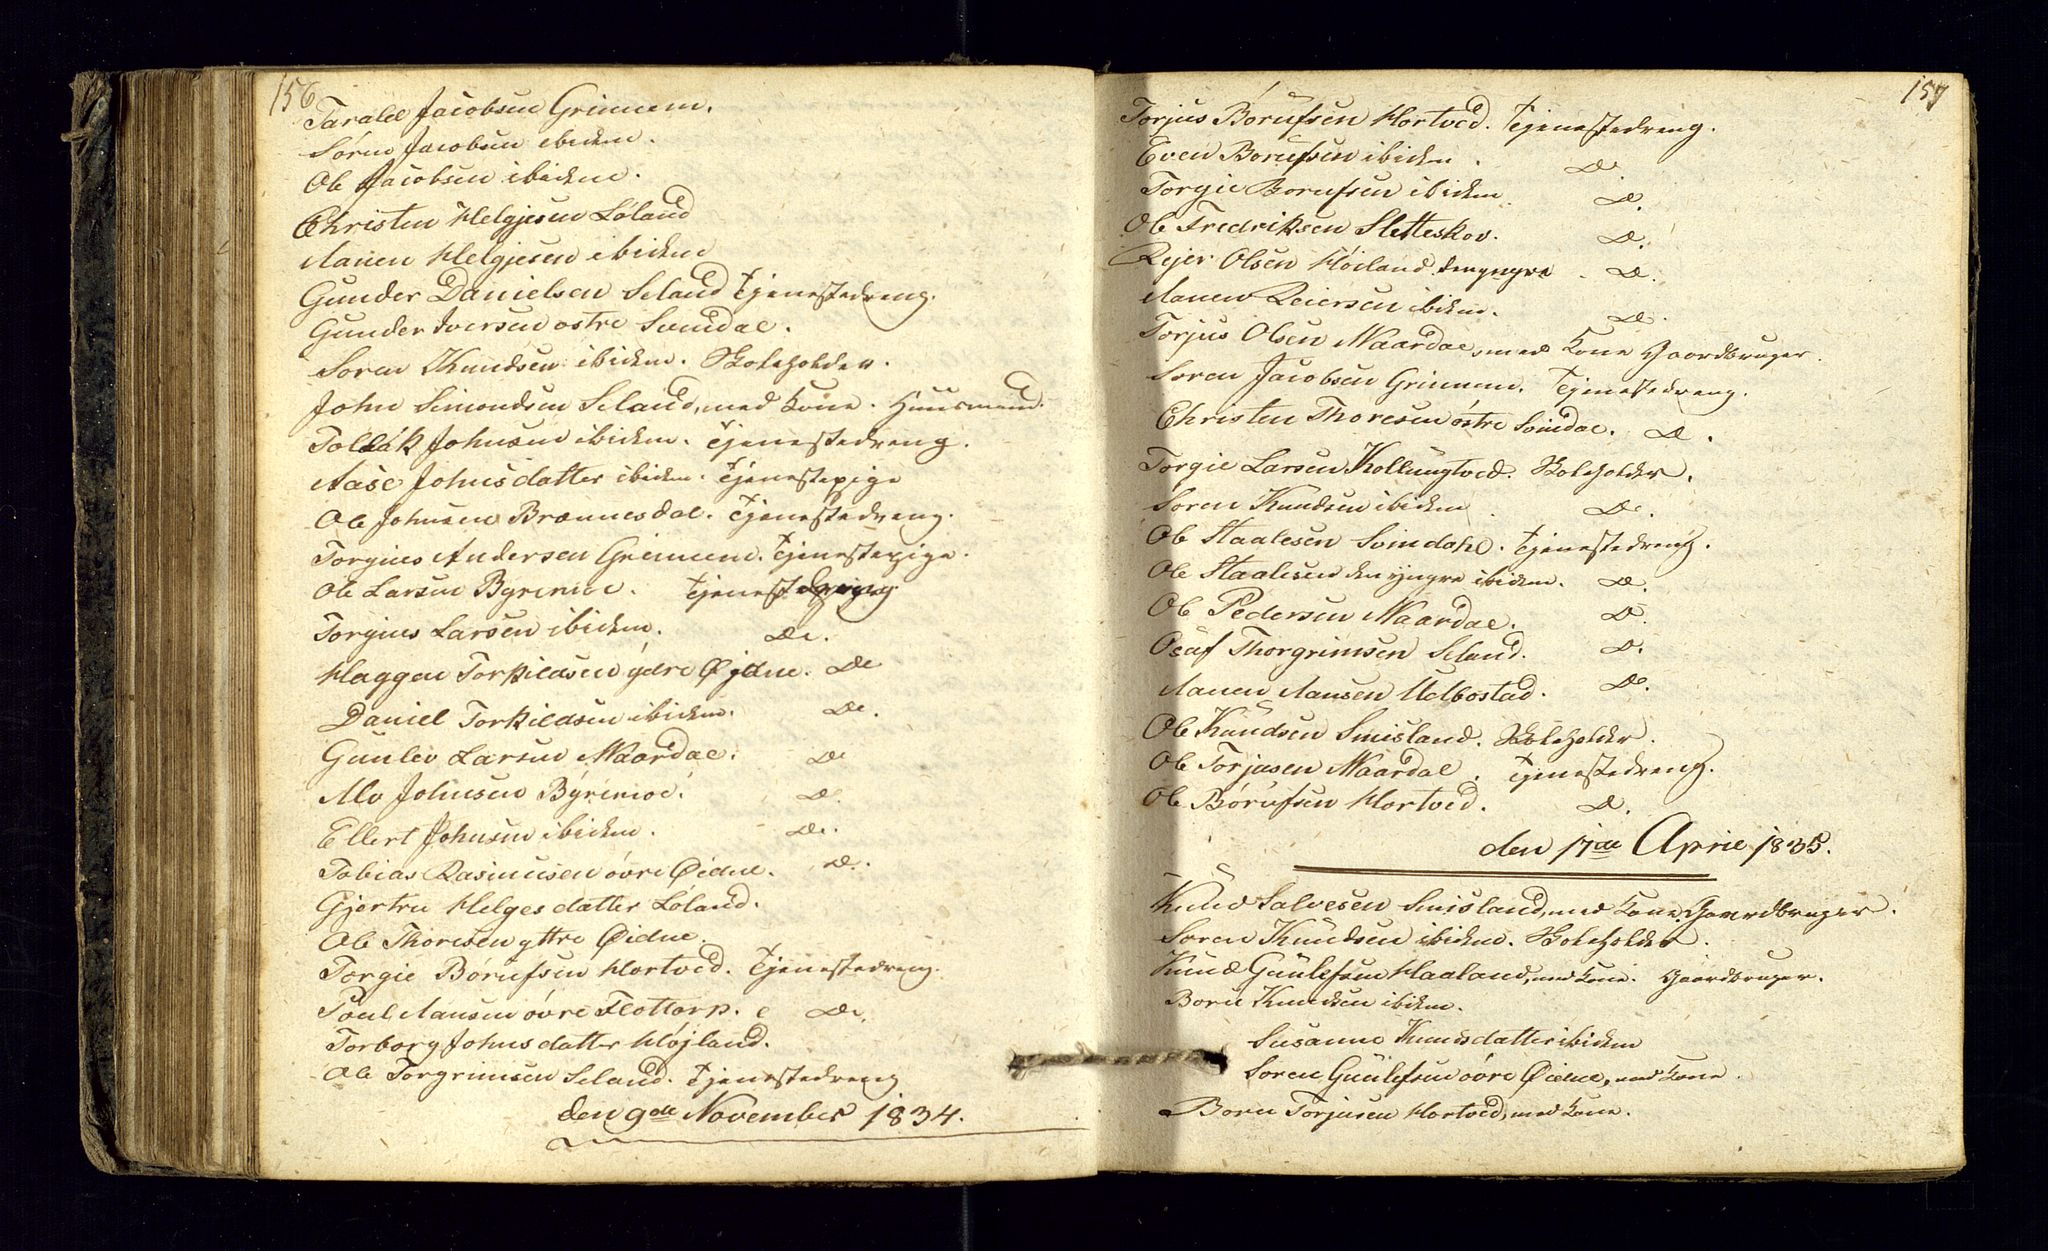 156
Tarald Jacobsen Grimem.
Søren Jacobsen ibidem.
Ole Jacobsen ibidem.
Christen Helgjesen Løland
Aanen Helgjesen ibidem
Gunder Danielsen Seland Tjenestedreng.
Gunder Iversen østre Svindal.
Søren Knudsen ibidem. Skoleholder.
John Simondsen Seland, med Kone. Huusmand.
Tollak Johnsen ibidem. Tjenestedreng.
Aase Johnsdatter ibidem. Tjenestepige
Ole Johnsen Brænnesdal. Tjenestedreng.
Torgius Andersen Grimem. Tjenestepige.
Ole Larsen Byremoe. Tjenestedreng
Torgius Larsen ibidem. Do.
Haagen Torkildsen ydre Øjdne. Do
Daniel Torkildsen ibidem. Do.
Gunlev Larsen Naardal. Do
Alv Johnsen Byremoe. Do.
Ellert Johnsen ibidem. Do.
Tobias Rasmusen øvre Øidne. Do.
Gjertru Helgesdatter Løland.
Ole Thoresen yttre Øidne.
Torgie Børufsen Hortved. Tjenestedreng.
Poul Aansen øvre Flottorp. Do.
Torborg Johnsdatter Højland.
Ole Torgrimsen Seland. Tjenestedreng
den 9de November 1834.
157
Torjus Børufsen Hortved. Tjenestedreng.
Even Børufsen ibidem. Do
Torgie Børufsen ibidem. Do.
Ole Fredriksen Sletteskov. Do.
Rejer Olsen Høiland den yngre. Do.
Aanen Reiersen ibidem. Do.
Torjus Olsen Naardal, med Kone Gaardbruger.
Søren Jacobsen Grimem. Tjenestedreng.
Christen Thoresen østre Svindal. Do.
Torgie Larsen Kollungtved. Skoleholder.
Søren Knudsen ibidem. Do.
Ole Staalesen Svindahl. Tjenestedreng.
Ole Staalesen den yngre ibidem. Do.
Ole Pedersen Naardal. Do.
Oluf Thorgrimsen Seland. Do.
Aanen Aansen Udbostad. Do.
Ole Knudsen Smisland. Skoleholder.
Ole Torjusen Naardal. Tjenestedreng.
Ole Børufsen Hortved. Do.
den 17de April 1835.
Knud Salvesen Smisland, med Kone. Gaardbruger.
Søren Knudsen ibidem. Skoleholder.
Knud Gunlefsen Haaland, med Kone. Gaardbruger.
Børu Knudsen ibidem.
Susanne Knudsdatter ibidem
Søren Gunlefsen øvre Øidne, med Kone.
Børu Torjusen Hortved, med Kone.